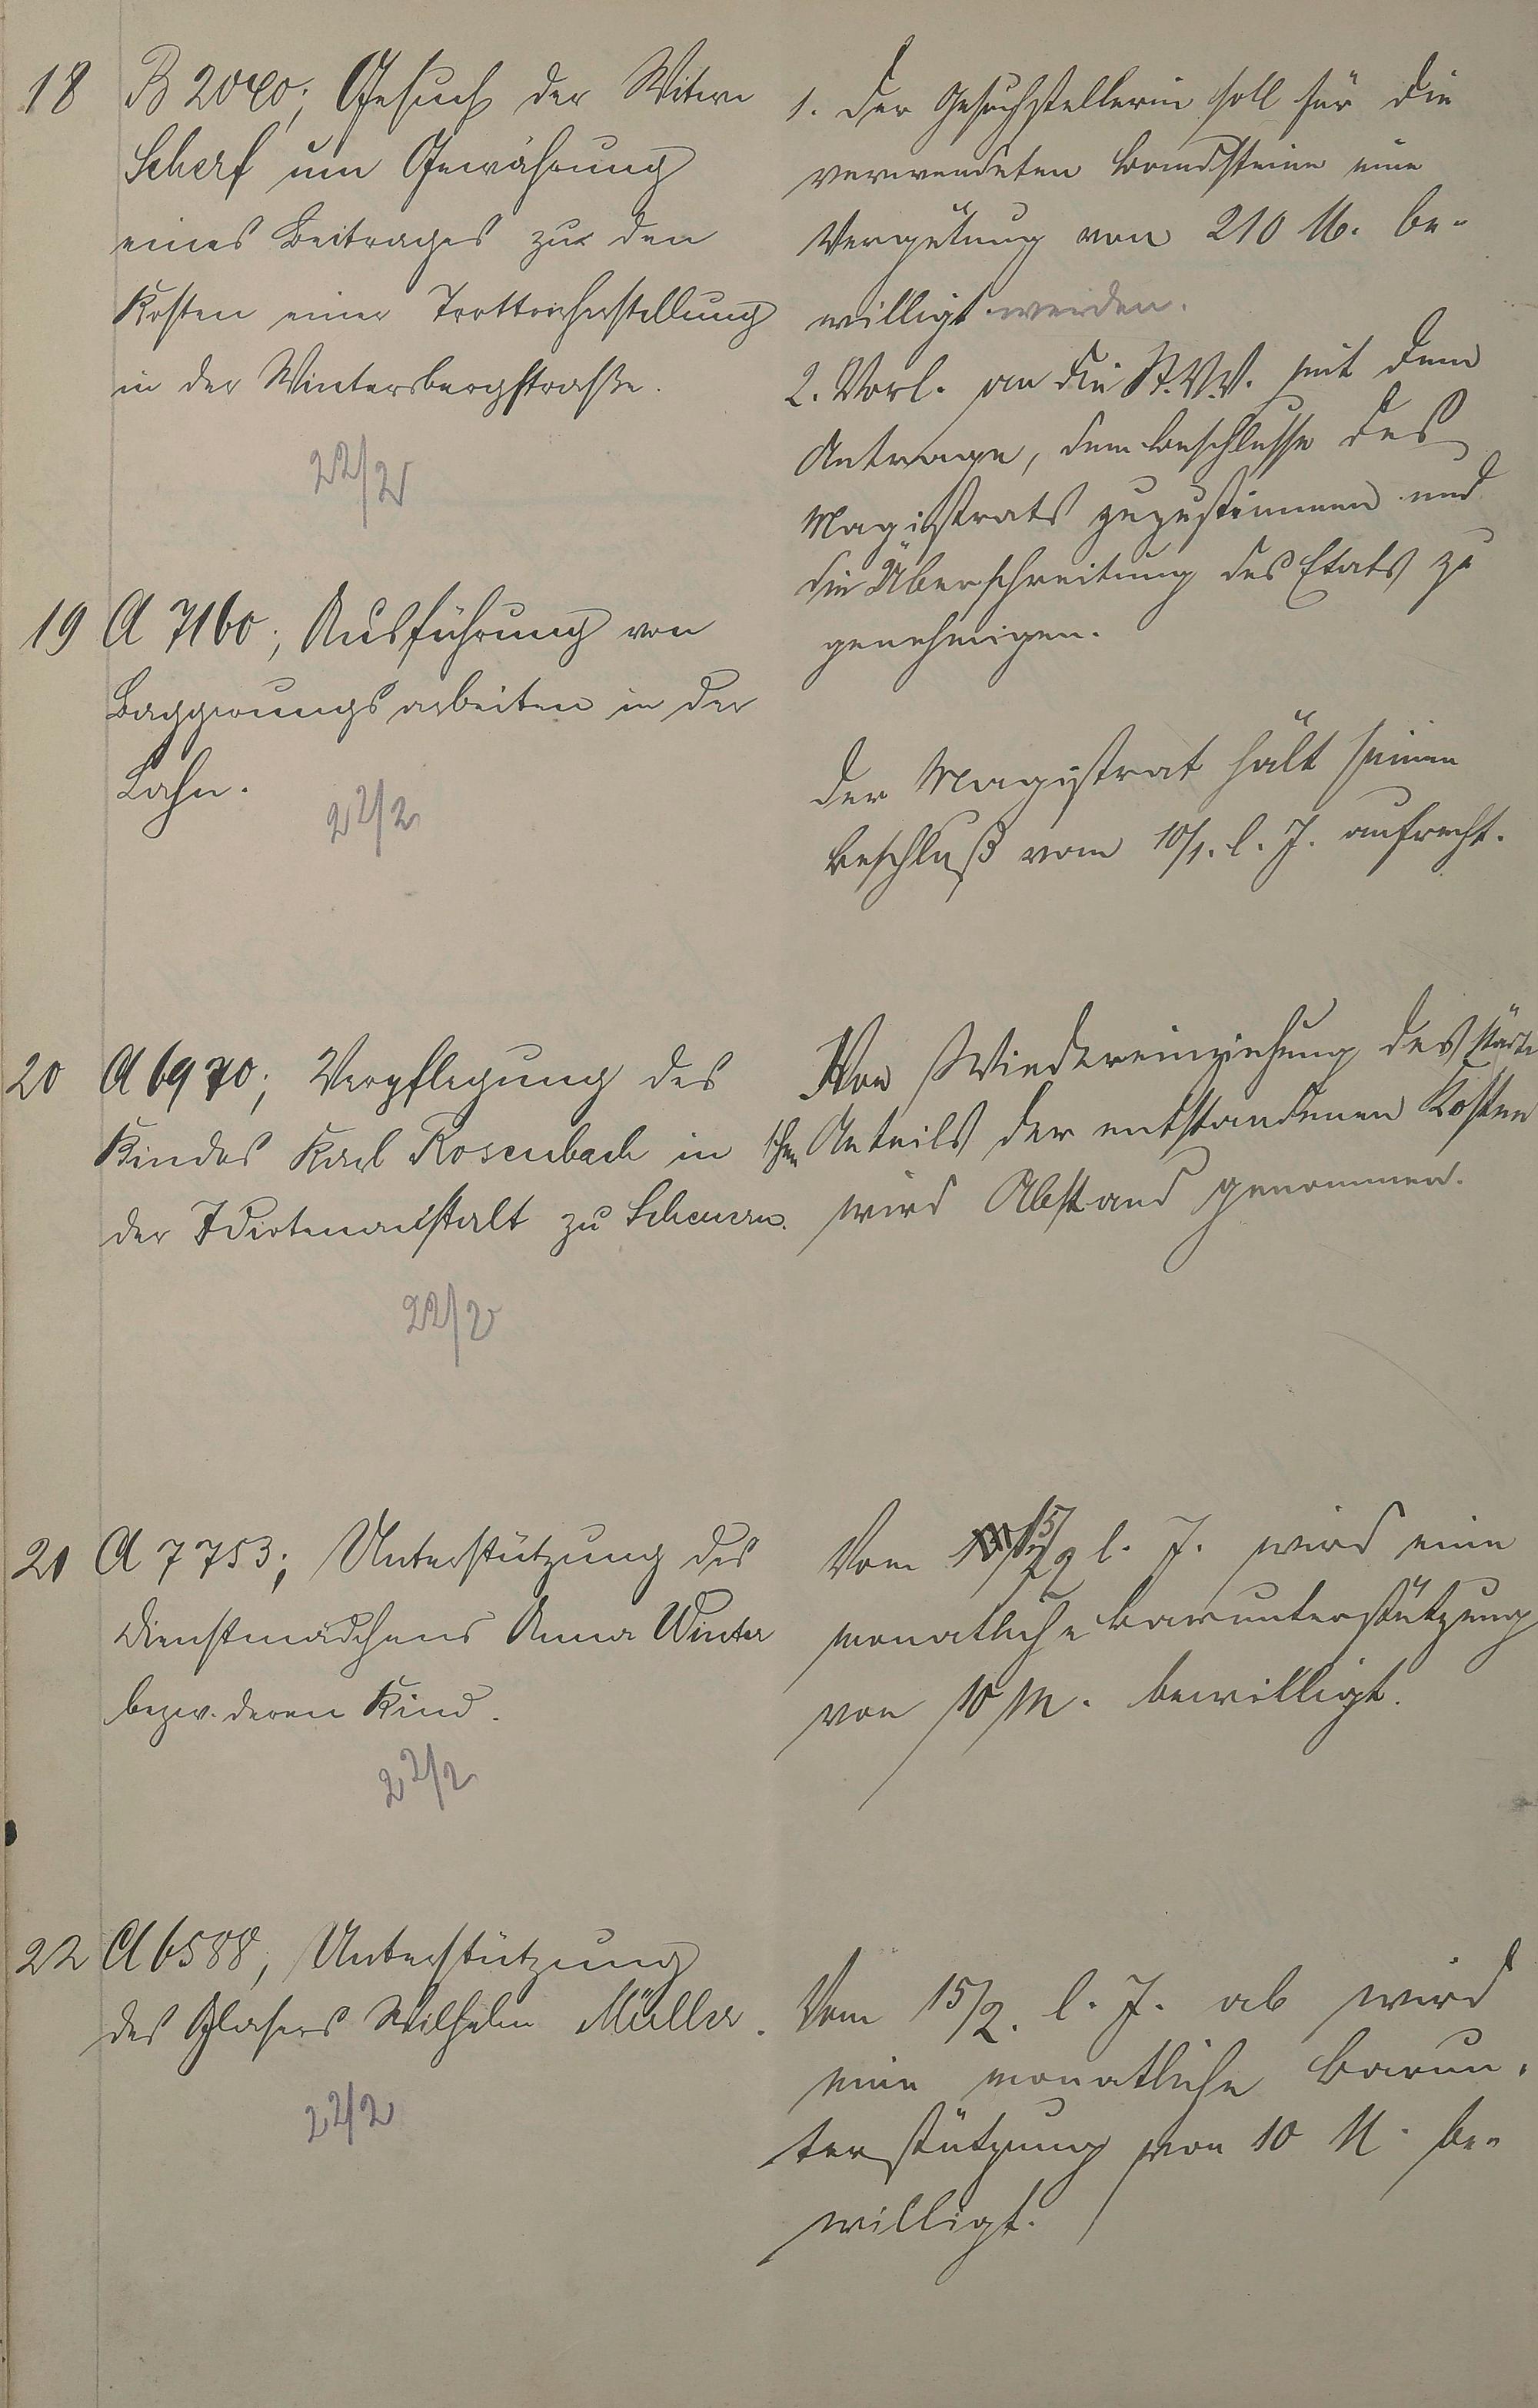 18 B 2040; Gesuch der Witwe
Scherf um Gewährung
eines Beitrages zu den
Kosten einer Trottoirherstellung
in der Wintersbergstraße.
22/2
1. Der Gesuchstellerin soll für die
verwendeten Bordsteine eine
Vergütung von 210 M. be-
willigt werden.
2. Vorl. an die St.V.V. mit dem
Antrage, dem Beschlusse des
Magistrats zuzustimmen und
die Überschreitung des Etats zu
genehmigen.
19 A 7160; Ausführung von
Baggerungsarbeiten in der
Lahn.
22/2
Der Magistrat hält seinen
Beschluß vom 10/1. l. J. aufrecht.
20 A 6970; Verpflegung des
Kindes Karl Rosenbach in
der Idiotenanstalt zu Scheuern.
22/2
Von Wiedereinziehung des städti
schen Anteils der entstandenen Kosten
wird Abstand genommen.
21 A 7753; Unterstützung des
Dienstmädchens Anna Winter
bezw. deren Kind.
22/2
Vom 15/2 l. J. wird eine
monatliche Barunterstützung
von 10 M. bewilligt.
22 A 6588; Unterstützung
des Glasers Wilhelm Müller.
22/2
Vom 15/2. l. J. ab wird
eine monatliche Barun-
terstützung von 10 M. be-
willigt.